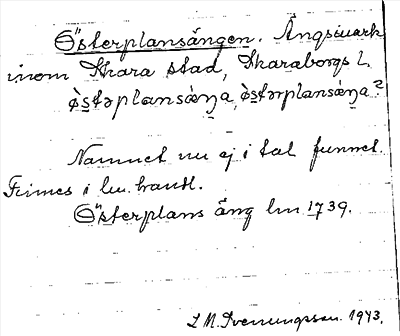 Österplansängen. Ängsmark
inom Skara stad, Skaraborgs l.
Namnet nu ej i tal funnet.
Finnes i lm. handl.
Österplans äng lm 1739.
L M. Svenungsson. 1943.